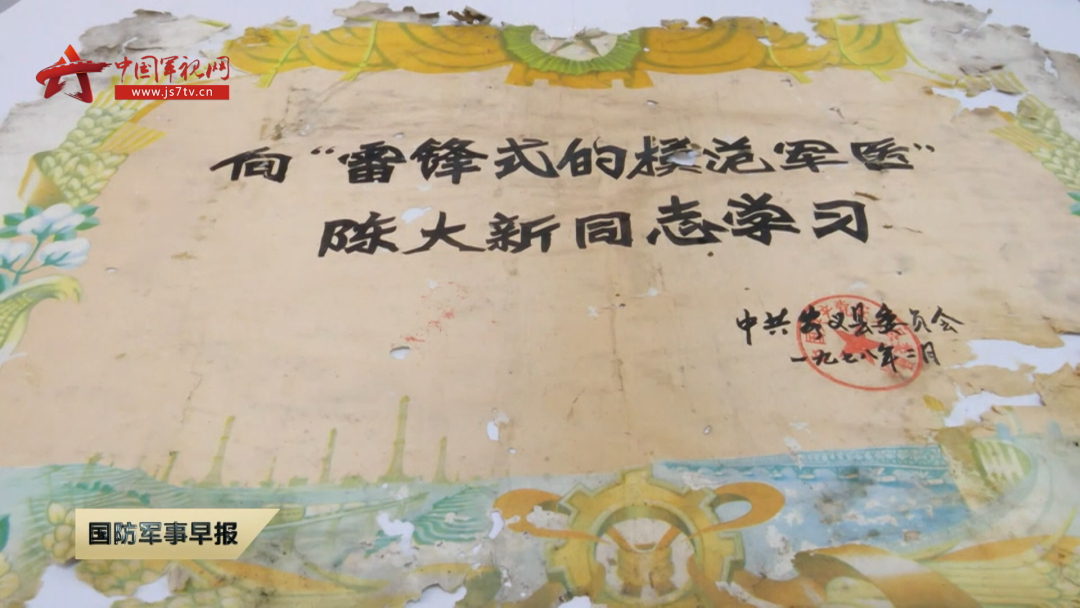 中国军视网
www.js7tv.cn
向“雷锋式的模范军医”
陈大新同志学习
中共安义县委员会
一九七八年二月
国防军事早报